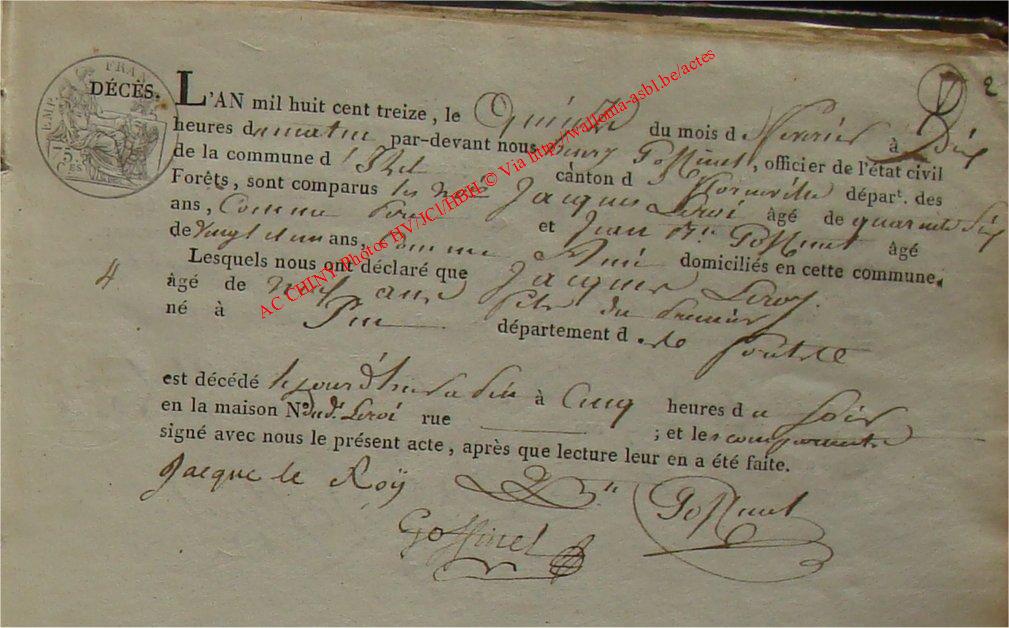 2
DÉCÈS.
L'AN mil huit cent treize, le Quinze du mois d fevrier à Dix
heures du matin par-devant nous henry Goffinet, officier de l'état civil
de la commune d'Izel canton d florenville départ. des
Forêts, sont comparus les Jacques Leroi âgé de quarante six
ans, Comme pere et Jean Goffinet âgé
de vingt et un ans, Comme Ami domiciliés en cette commune.
Lesquels nous ont déclaré que Jacques Leroy
4
âgé de ans fils du premier
né à Pin département d
est décédé à Cinq heures du Soir
en la maison N° dud. Leroi rue ; et les comparants
signé avec nous le présent acte, après que lecture leur en a été faite.
Jacque le Roÿ Goffinet
Goffinet
AC CHINY Photos HV/JCl/HBH © Via http://wallonia-asbl.be/actes